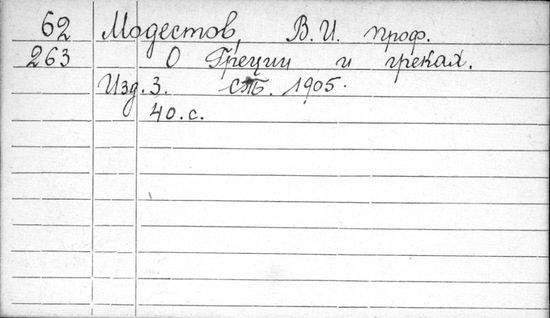 62 Модестов, В.И. проф.
263 О Греции и греках.
Изд. 3. СПБ. 1905.
40.с.